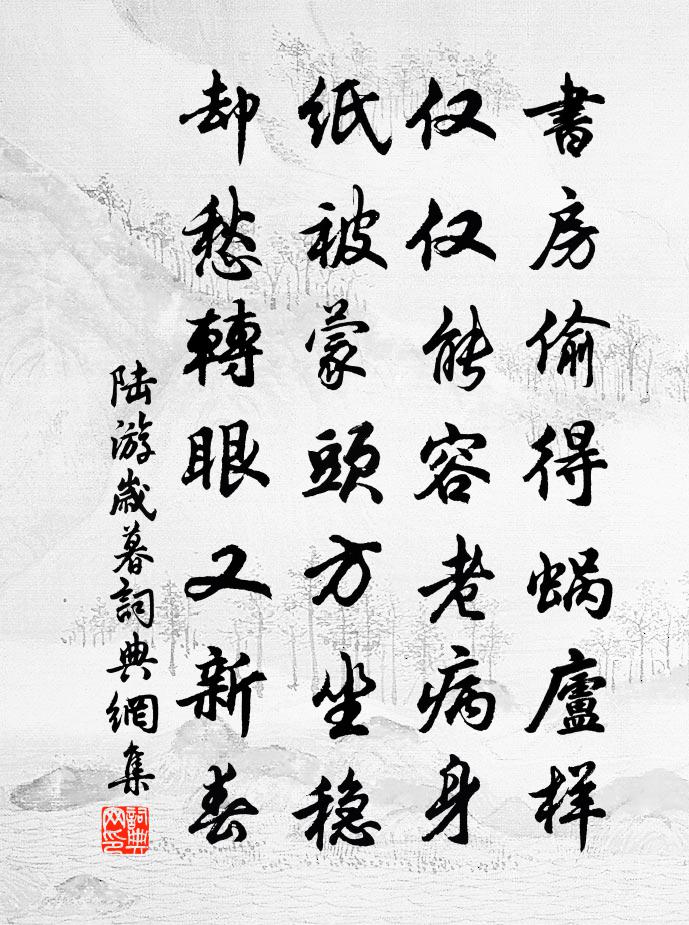 書房偷得蜗廬样
仅仅能容老病身
纸被蒙頭方坐稳
却愁轉眼又新春
陆游歲暮詞典網集
詞典网印